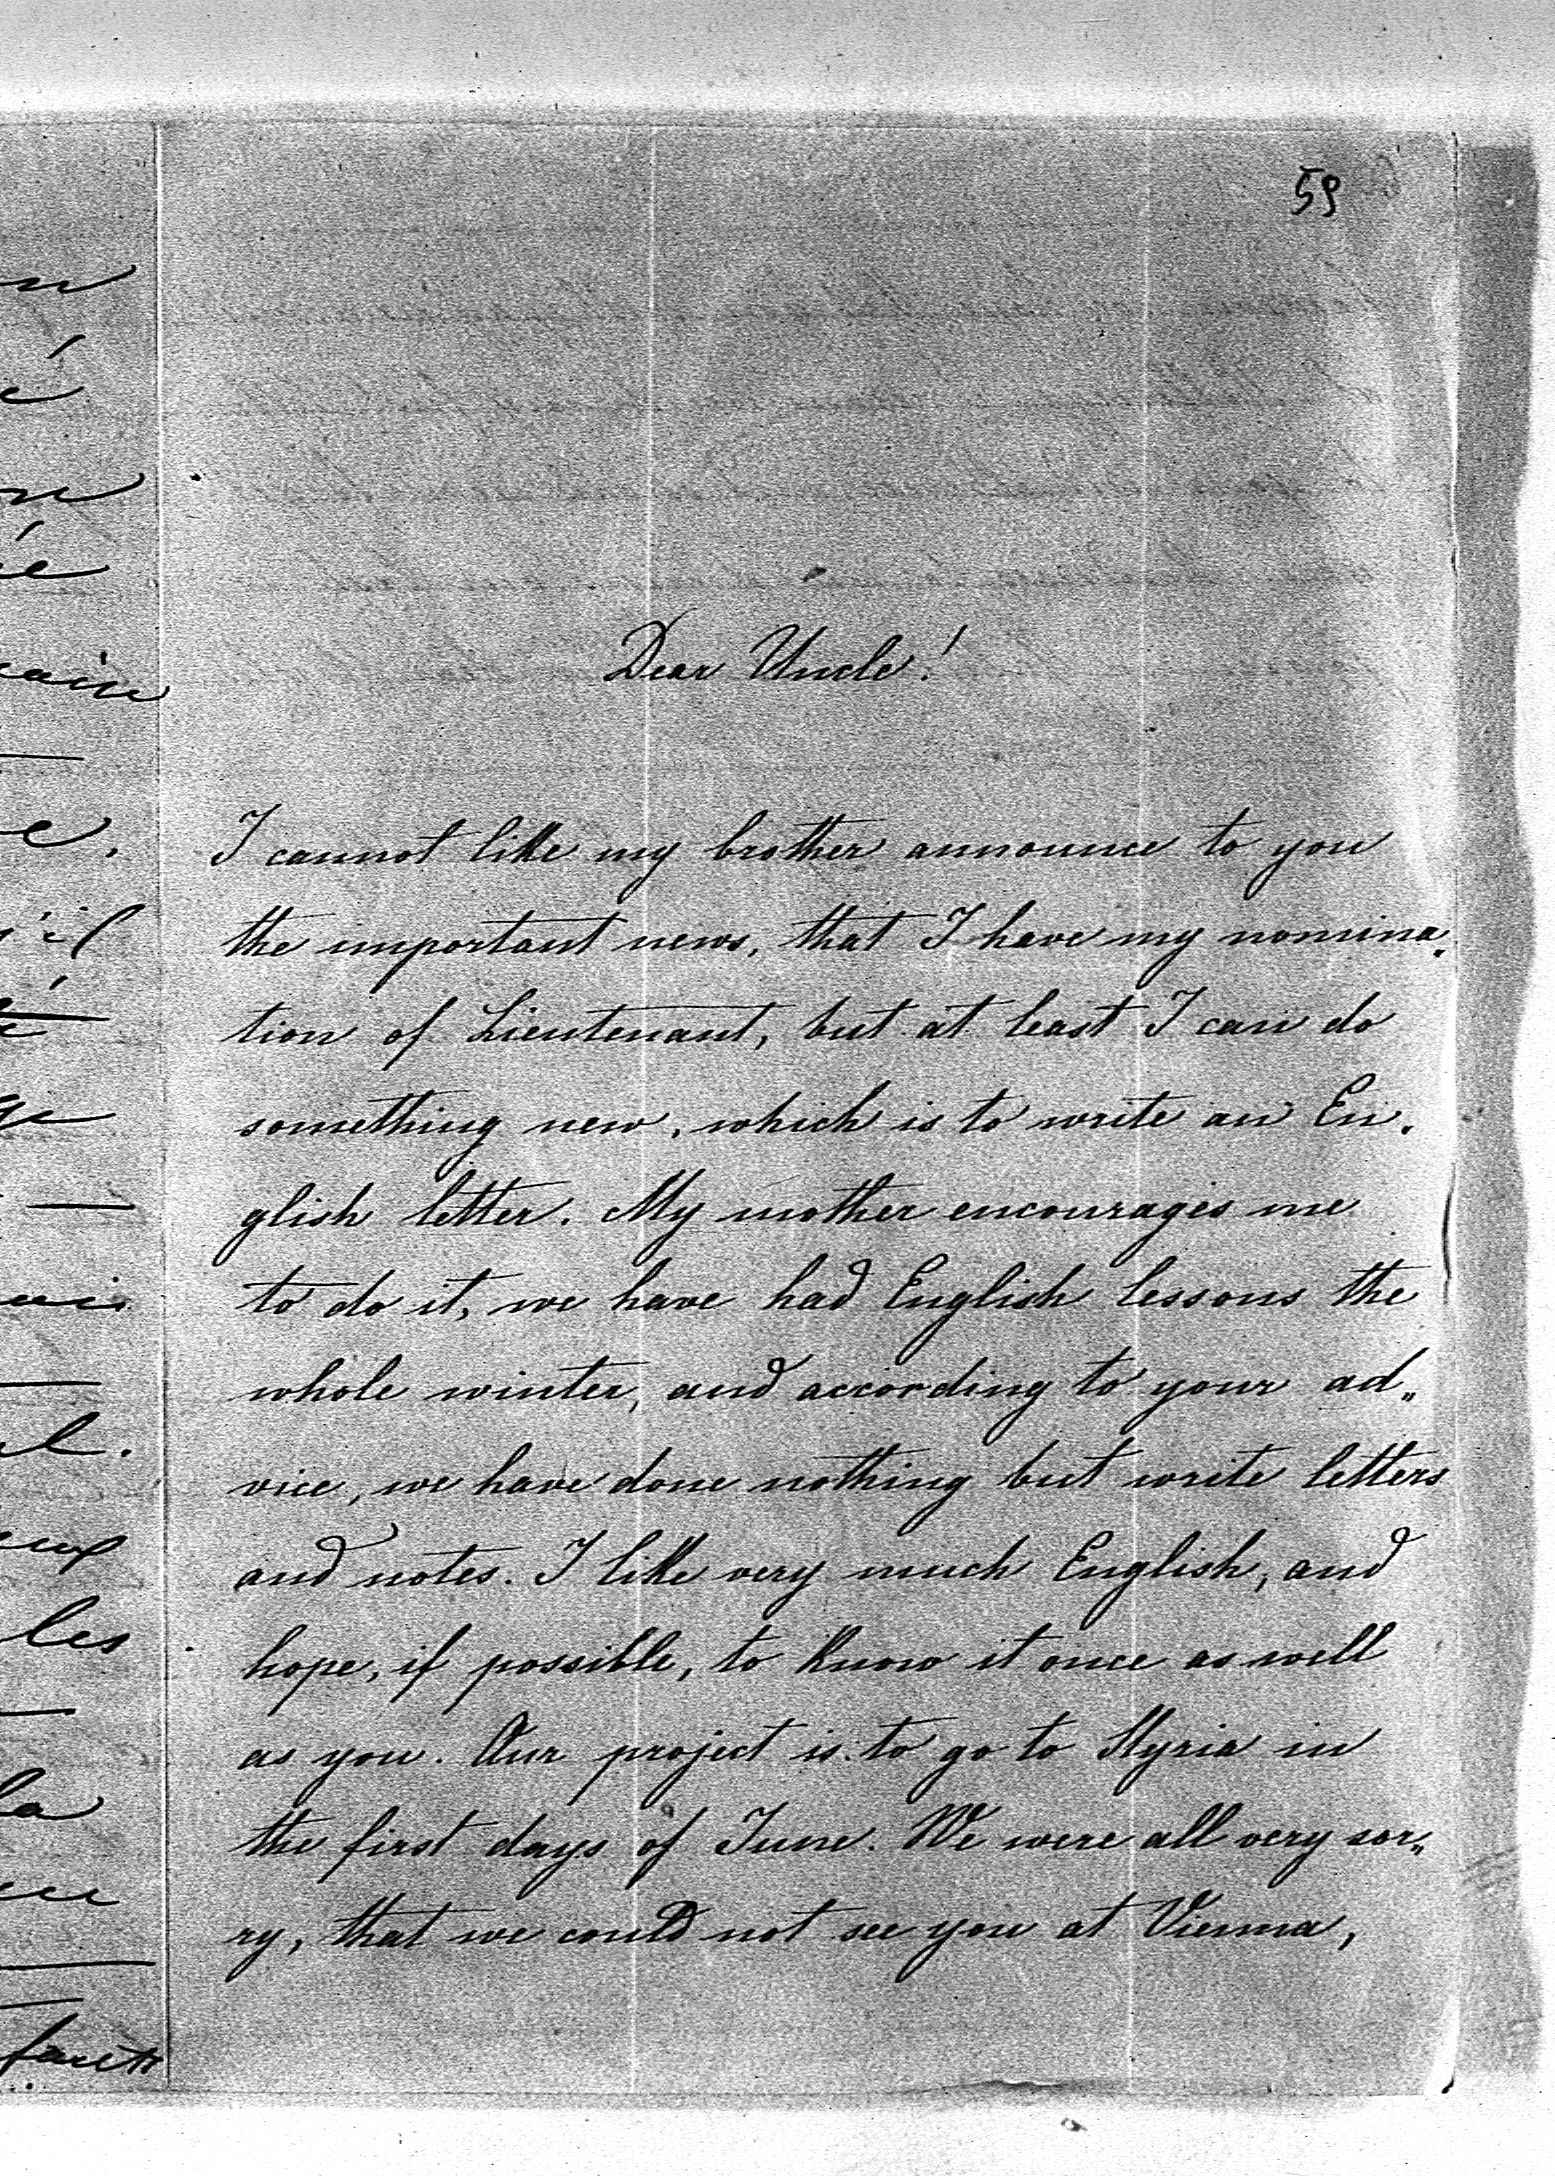 59
Dear Uncle!
I cannot like my brother announce to you
the important news, that I have my nomina.
tion of Lieutenant, but at least I can do
something new, which is to write an En.
glish letter. My mother encourages me
to do it, we have had English lessons the
whole winter, and according to your ad„
vice, we have done nothing but write letters
and notes. I like very much English, and
hope, if possible, to know it once as well
as you. Our project is to go to Styria in
the first days of June. We were all very sor„
ry, that we could not see you at Vienna,
é
e,
les
la